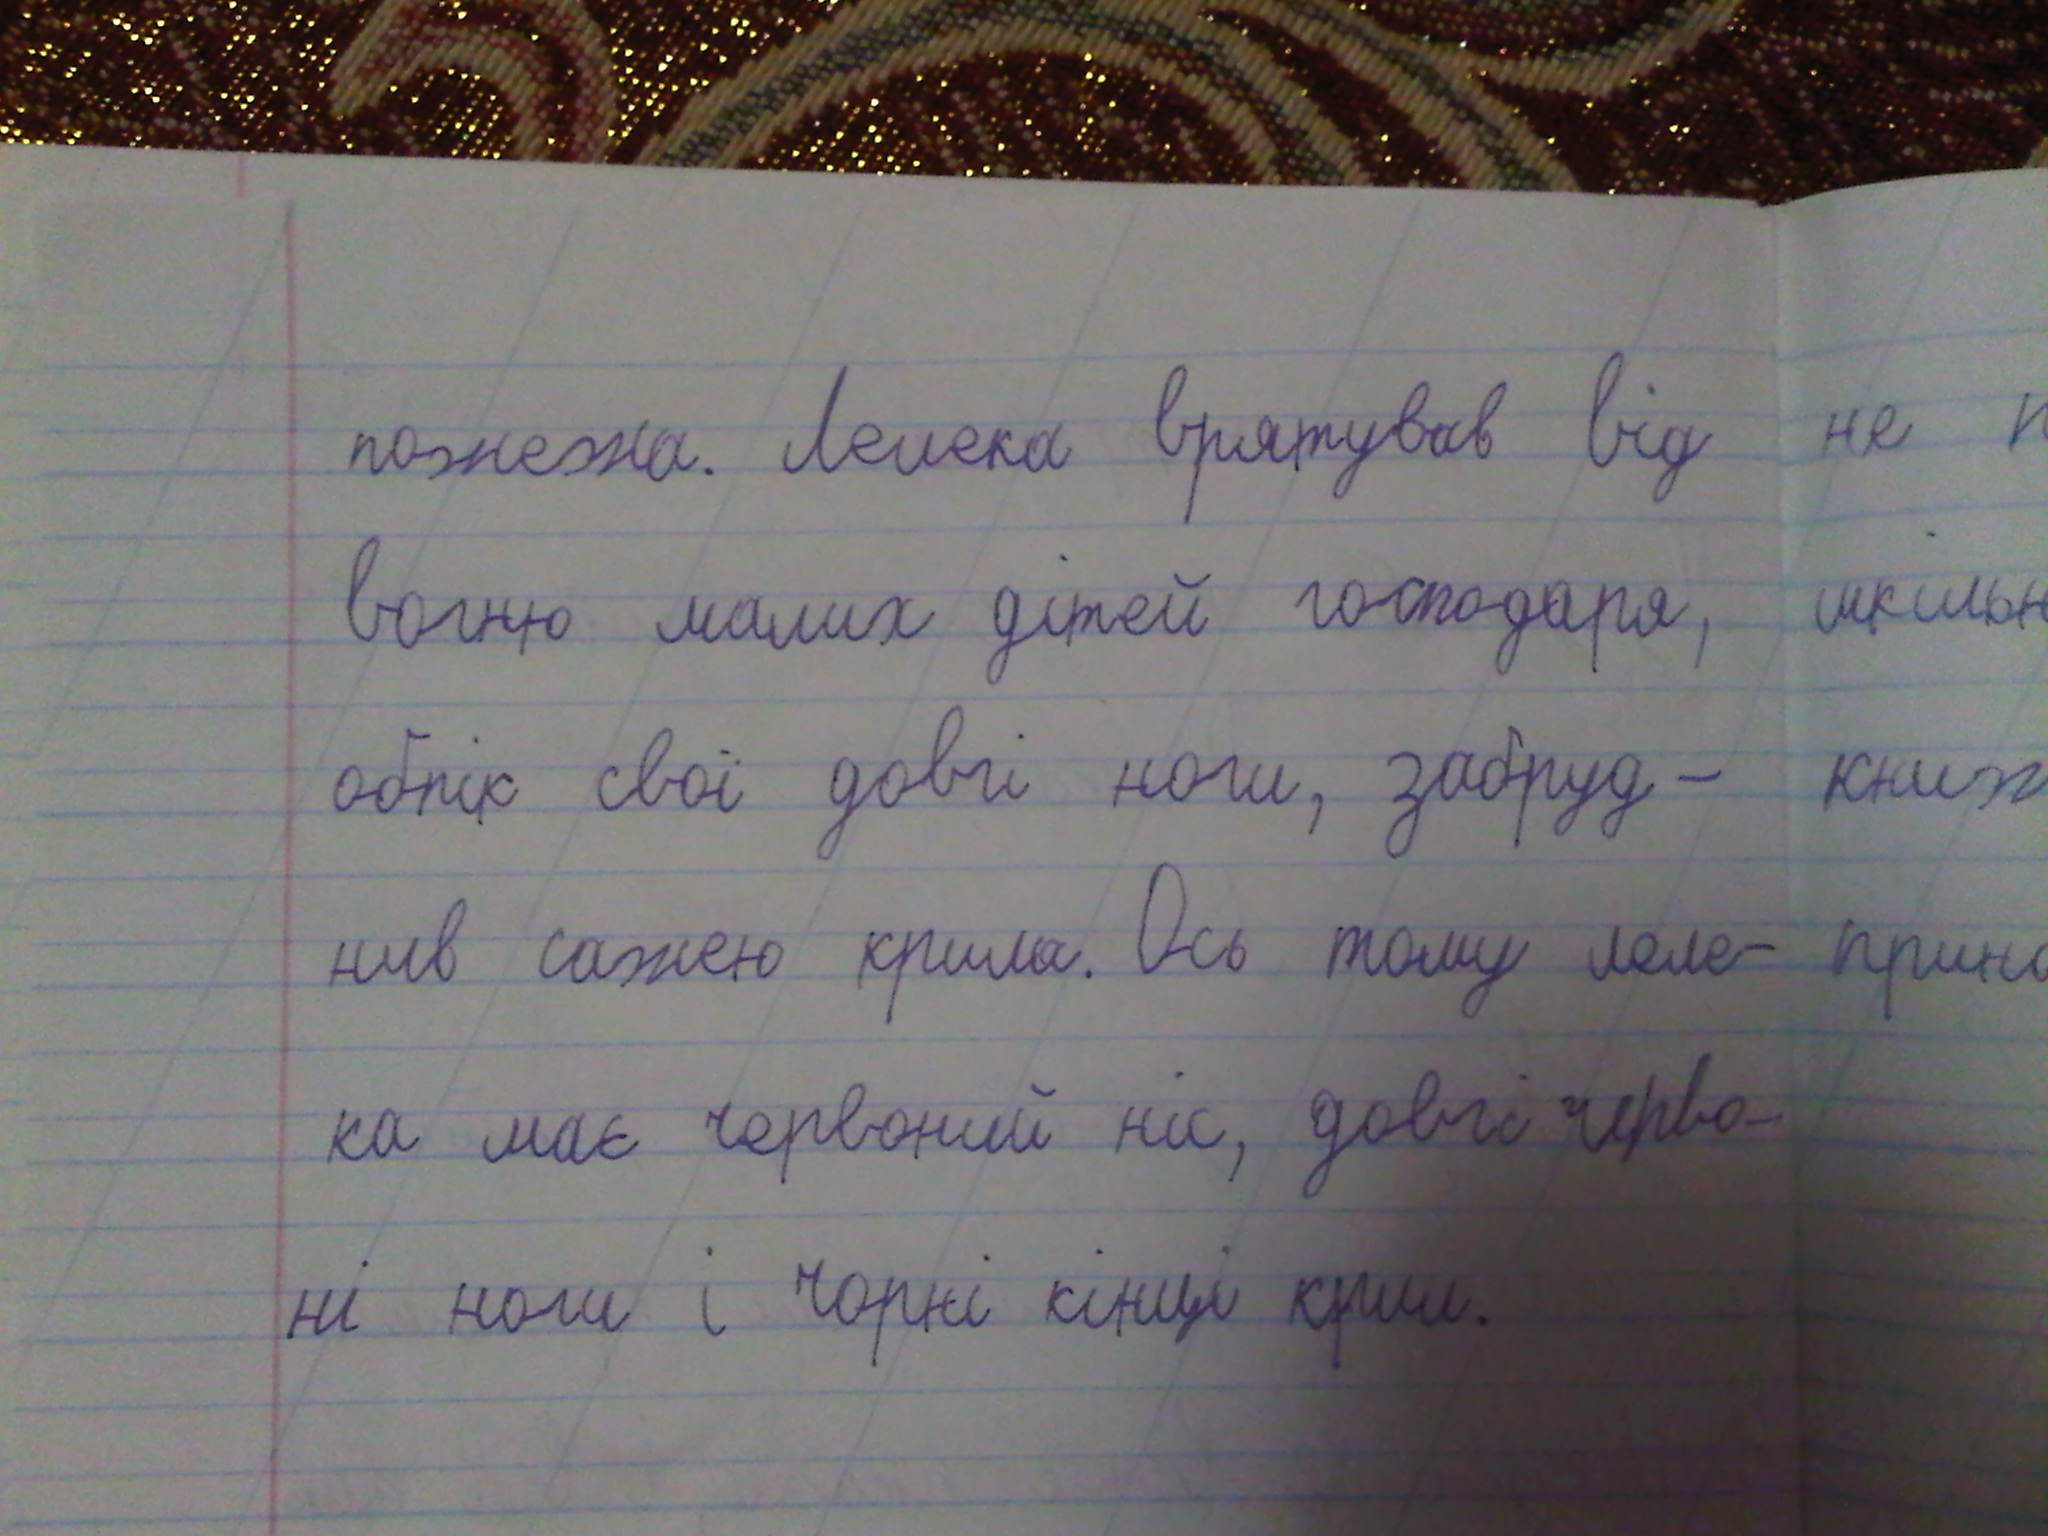 пожежа. Лелека врятував від
вогню малих дітей господаря,
обпік свої довгі ноги, забруд-
нив сажею крила. Ось тому леле-
ка має червоний ніс, довгі черво-
ні ноги і чорні кінці крил.
не